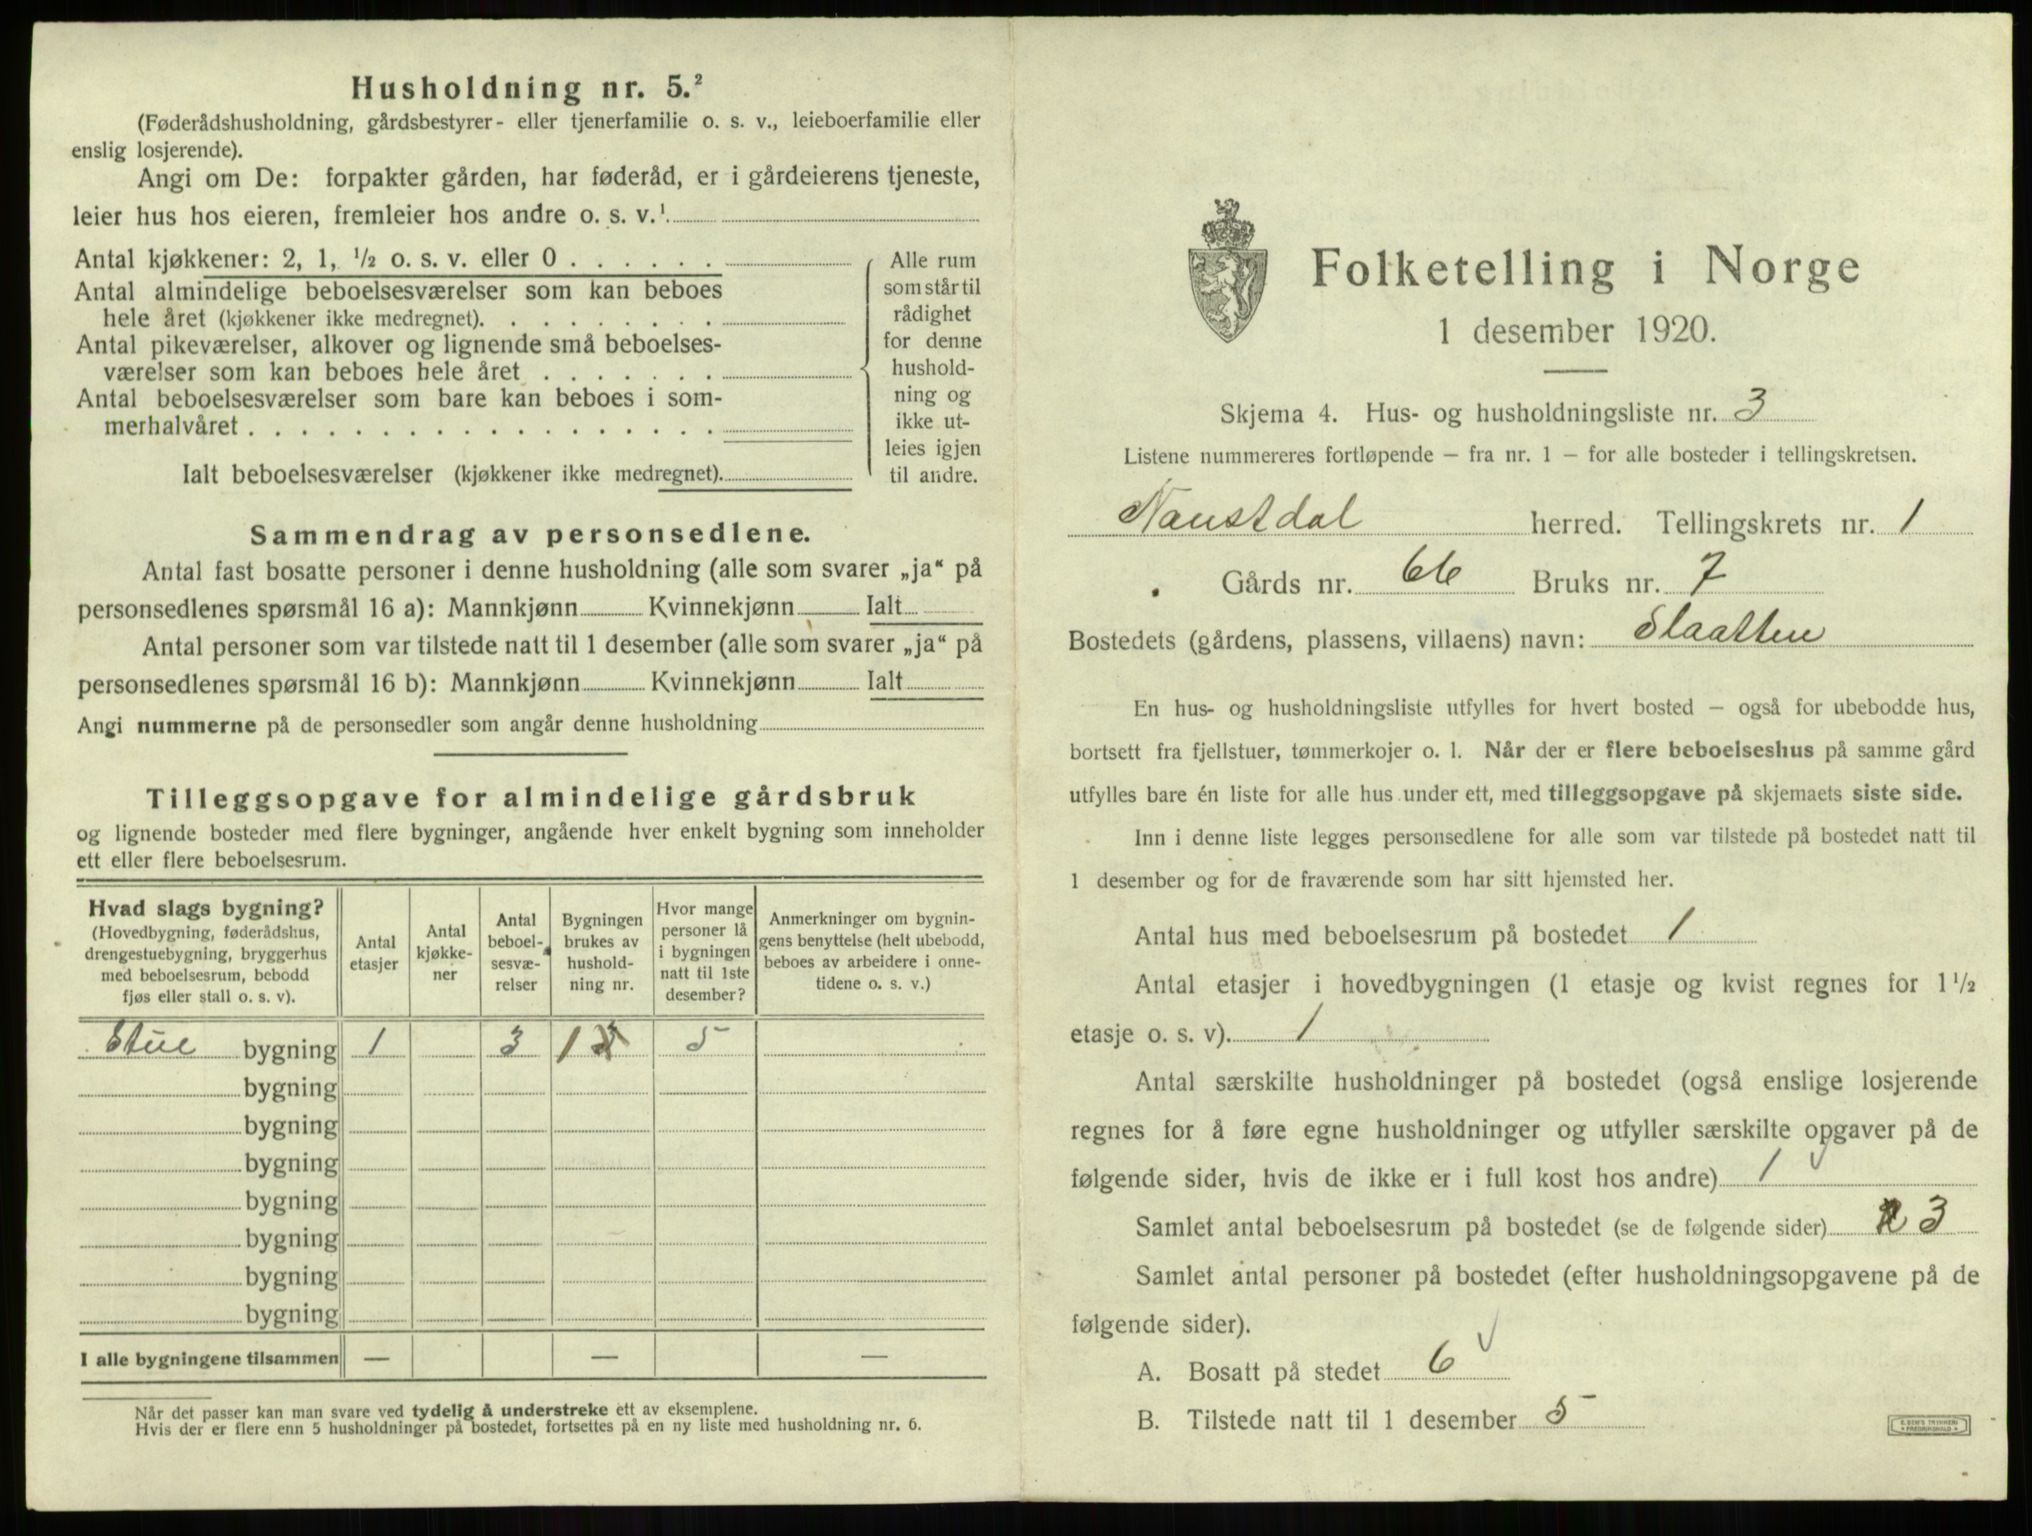 Husholdning nr. 5.²
(Føderådshusholdning, gårdsbestyrer- eller tjenerfamilie o. s. v., leieboerfamilie eller
enslig losjerende).
Angi om De: forpakter gården, har føderåd, er i gårdeierens tjeneste,
leier hus hos eieren, fremleier hos andre o. s. v.¹
Antal kjøkkener: 2, 1, ½ o. s. v. eller 0 . . . . . .
Antal almindelige beboelsesværelser som kan beboes
hele året (kjøkkener ikke medregnet). . . . . . . . .
Antal pikeværelser, alkover og lignende små beboelses-
værelser som kan beboes hele året . . . . . . .
Antal beboelsesværelser som bare kan beboes i som-
merhalvåret . . . . . . . . . . . . . . . . . .
Ialt beboelsesværelser (kjøkkener ikke medregnet).
Alle rum
som står til
rådighet
for denne
hushold-
ning og
ikke ut-
leies igjen
til andre.
Sammendrag av personsedlene.
Antal fast bosatte personer i denne husholdning (alle som svarer „ja“ på
personsedlenes spørsmål 16 a): Mannkjønn Kvinnekjønn Ialt
Antal personer som var tilstede natt til 1 desember (alle som svarer „ja“ på
personsedlenes spørsmål 16 b): Mannkjønn Kvinnekjønn Ialt
Angi nummerne på de personsedler som angår denne husholdning
Tilleggsopgave for almindelige gårdsbruk
og lignende bosteder med flere bygninger, angående hver enkelt bygning som inneholder
ett eller flere beboelsesrum.
Hvad slags bygning?
(Hovedbygning, føderådshus,
drengestuebygning, bryggerhus
med beboelsesrum, bebodd
fjøs eller stall o. s. v).
Antal
etasjer
Antal
kjøkke-
ner
Antal
beboel-
sesvæ-
relser
Bygningen
brukes av
hushold-
ning nr.
Hvor mange
personer lå
i bygningen
natt til 1ste
desember?
Anmerkninger om bygnin-
gens benyttelse (helt ubebodd,
beboes av arbeidere i onne-
tidene o. s. v.)
Stue bygning 1 3 1 3 5
bygning
bygning
bygning
bygning
bygning
bygning
bygning
I alle bygningene tilsammen — — —
Når det passer kan man svare ved tydelig å understreke ett av eksemplene.
Hvis der er flere enn 5 husholdninger på bostedet, fortsettes på en ny liste med husholdning nr. 6.
Folketelling i Norge
1 desember 1920.
Skjema 4. Hus- og husholdningsliste nr. 3
Listene nummereres fortløpende – fra nr. 1 – for alle bosteder i tellingskretsen.
Naustdal herred. Tellingskrets nr. 1
Gårds nr. 66 Bruks nr. 7
Bostedets (gårdens, plassens, villaens) navn: Slaatten
En hus- og husholdningsliste utfylles for hvert bosted – også for ubebodde hus,
bortsett fra fjellstuer, tømmerkojer o. l. Når der er flere beboelseshus på samme gård
utfylles bare én liste for alle hus under ett, med tilleggsopgave på skjemaets siste side.
Inn i denne liste legges personsedlene for alle som var tilstede på bostedet natt til
1 desember og for de fraværende som har sitt hjemsted her.
Antal hus med beboelsesrum på bostedet 1
Antal etasjer i hovedbygningen (1 etasje og kvist regnes for 1½
etasje o. s. v). 1
Antal særskilte husholdninger på bostedet (også enslige losjerende
regnes for å føre egne husholdninger og utfyller særskilte opgaver på de
følgende sider, hvis de ikke er i full kost hos andre) 1
Samlet antal beboelsesrum på bostedet (se de følgende sider) 3
Samlet antal personer på bostedet (efter husholdningsopgavene på de
følgende sider).
A. Bosatt på stedet 6
B. Tilstede natt til 1 desember 5